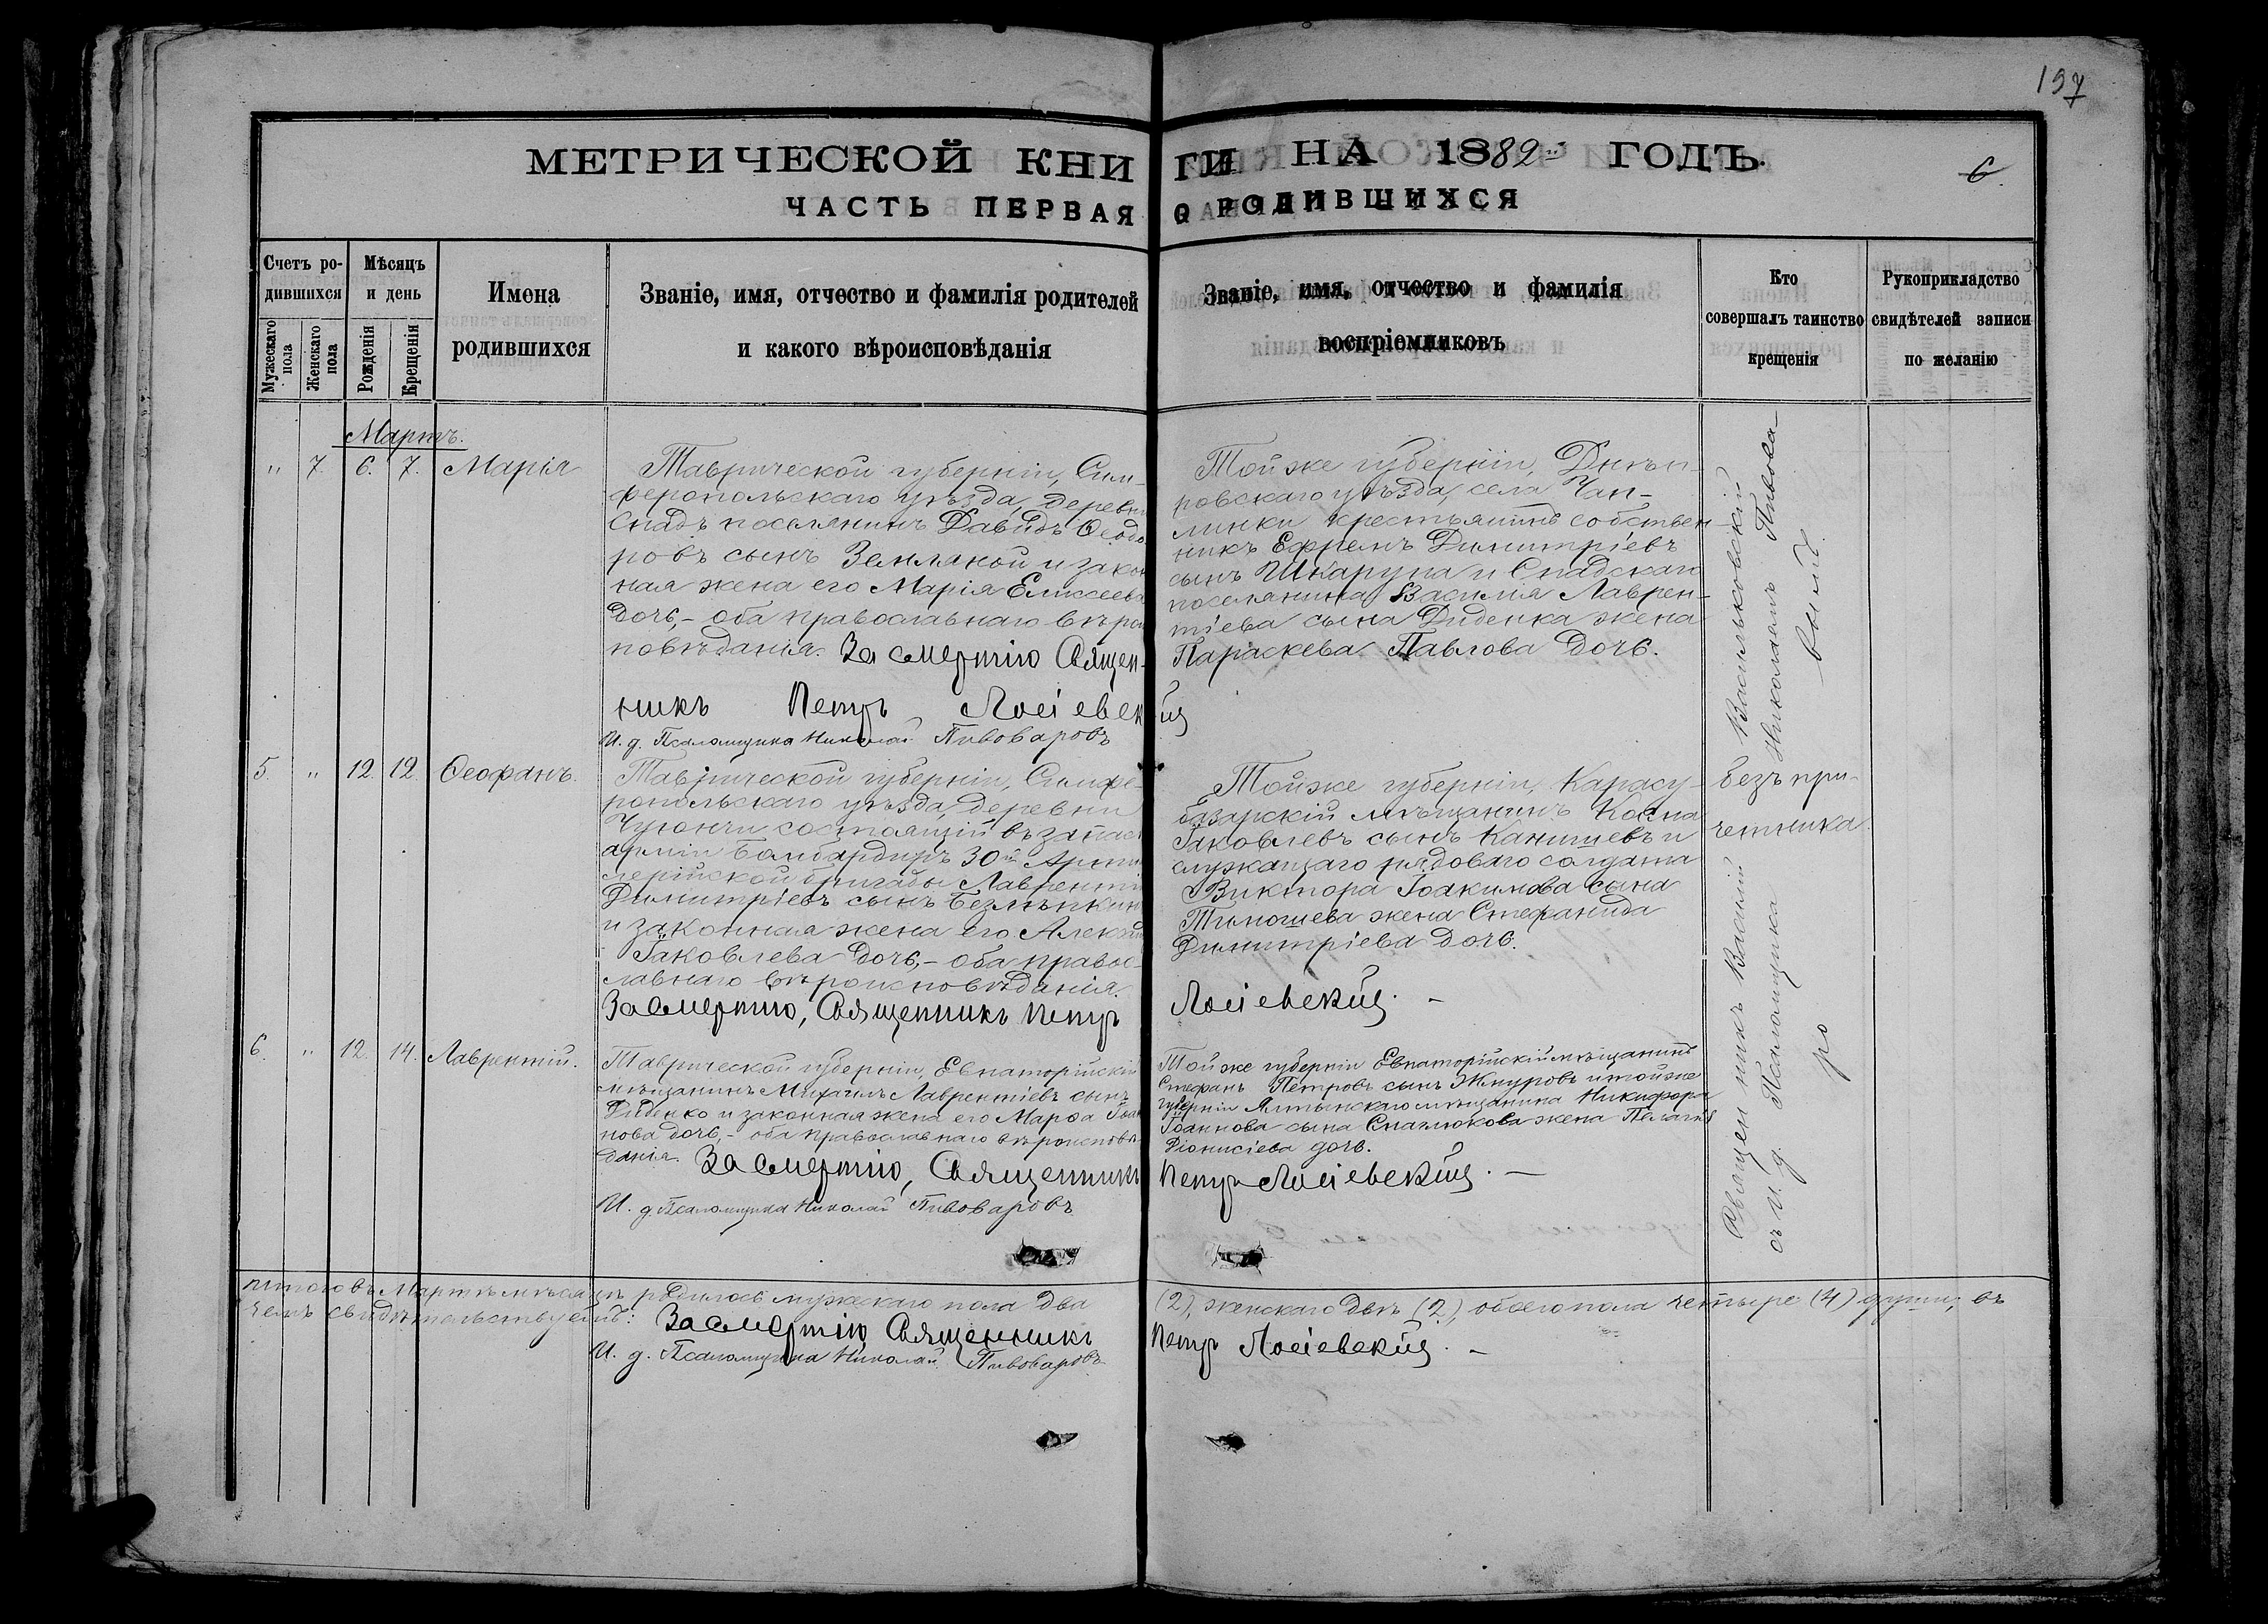 197
МЕТРИЧЕСКОЙ КНИГИ НА 1882й ГОДЪ.
6.
ЧАСТЬ ПЕРВАЯ О РОДИВШИХСЯ
Счетъ родившихся
Мужескаго пола
Женскаго пола
Мѣсяцъ и день
Рожденія
Крещенія
Имена родившихся
Званіе, имя, отчество и фамилія родителей
и какого вѣроисповѣданія
Званіе, имя, отчество и фамилія
воспріемниковъ
Кто
совершалъ таинство
крещенія
Рукоприкладство
свидѣтелей записи
по желанію
Мартъ.
" 7. 6. 7. Марія
Таврической губерніи, Сим-
феропольскаго уѣзда, деревни
Спадъ поселянинъ Давидъ Ѳеодо
ровъ сынъ Земляной и закон
ная жена его Марія Елисеева
дочь,- оба православнаго вѣрои
повѣданія. За смертію Священ-
никъ Петръ Лосіевскій
И. д. Псаломщика Николай Пивоваровъ
Тойже губерніи, Днѣп-
ровскаго уѣзда, села Чап-
линки крестьянинъ собствен-
никъ Ефремъ Димитріевъ
сынъ Шкарупа и Спадскаго
поселянина Василія Лаврен-
тіева сына Диденка жена
Параскева Павлова дочь.
5. " 12. 12. Ѳеофанъ.
Таврической губерніи, Симфе-
ропольскаго уѣзда, деревни
состоящій въ запас
арміи Бомбардиръ 30й Арти
лерійской бригады Лаврентій
Димитріевъ сынъ
и законная жена его
Іаковлева дочь,- оба правос-
лавнаго вѣроисповѣданія.
За смертію, Священникъ Петръ Лосіевскій. -
Тойже губерніи, Карасу-
базарскій мѣщанинъ Косма
Іаковлевъ сынъ Канишевъ и
служащаго рядоваго солдата
Виктора Іоакимова сына
Тимошева жена Стефанида
Димитріева дочь.
6. " 12. 14. Лаврентій.
Таврической губерніи, Евпаторійскій
мѣщанинъ Михаилъ Лаврентіевъ сынъ
Диденко и законная жена его Марѳа Іоан
нова дочь,- оба православнаго вѣроисповѣ-
данія. За смертію, Священникъ Петръ Лосіевскій. -
И. д. Псаломщика Николай Пивоваровъ
Тойже губерніи Евпаторійскій мѣщанинъ
Стефанъ Петровъ сынъ Жмуровъ и тойже
губерніи Ялтынскаго мѣщанина Никифора
Іоаннова сына жена Пелагія
Діонисіева дочь.
Священникъ Василій Васильковскій
съ И. д. Псаломщика Николаемъ Пивова-
ро вымъ.
безъ при-
четника
Итого въ Мартѣ мѣсяцѣ родилось мужескаго пола два (2), женскаго двѣ (2), обоего пола четыре (4) души, въ
чемъ свидѣтельствуемъ: За смертію Священникъ Петръ Лосіевскій. -
И. д. Псаломщика Николай Пивоваровъ